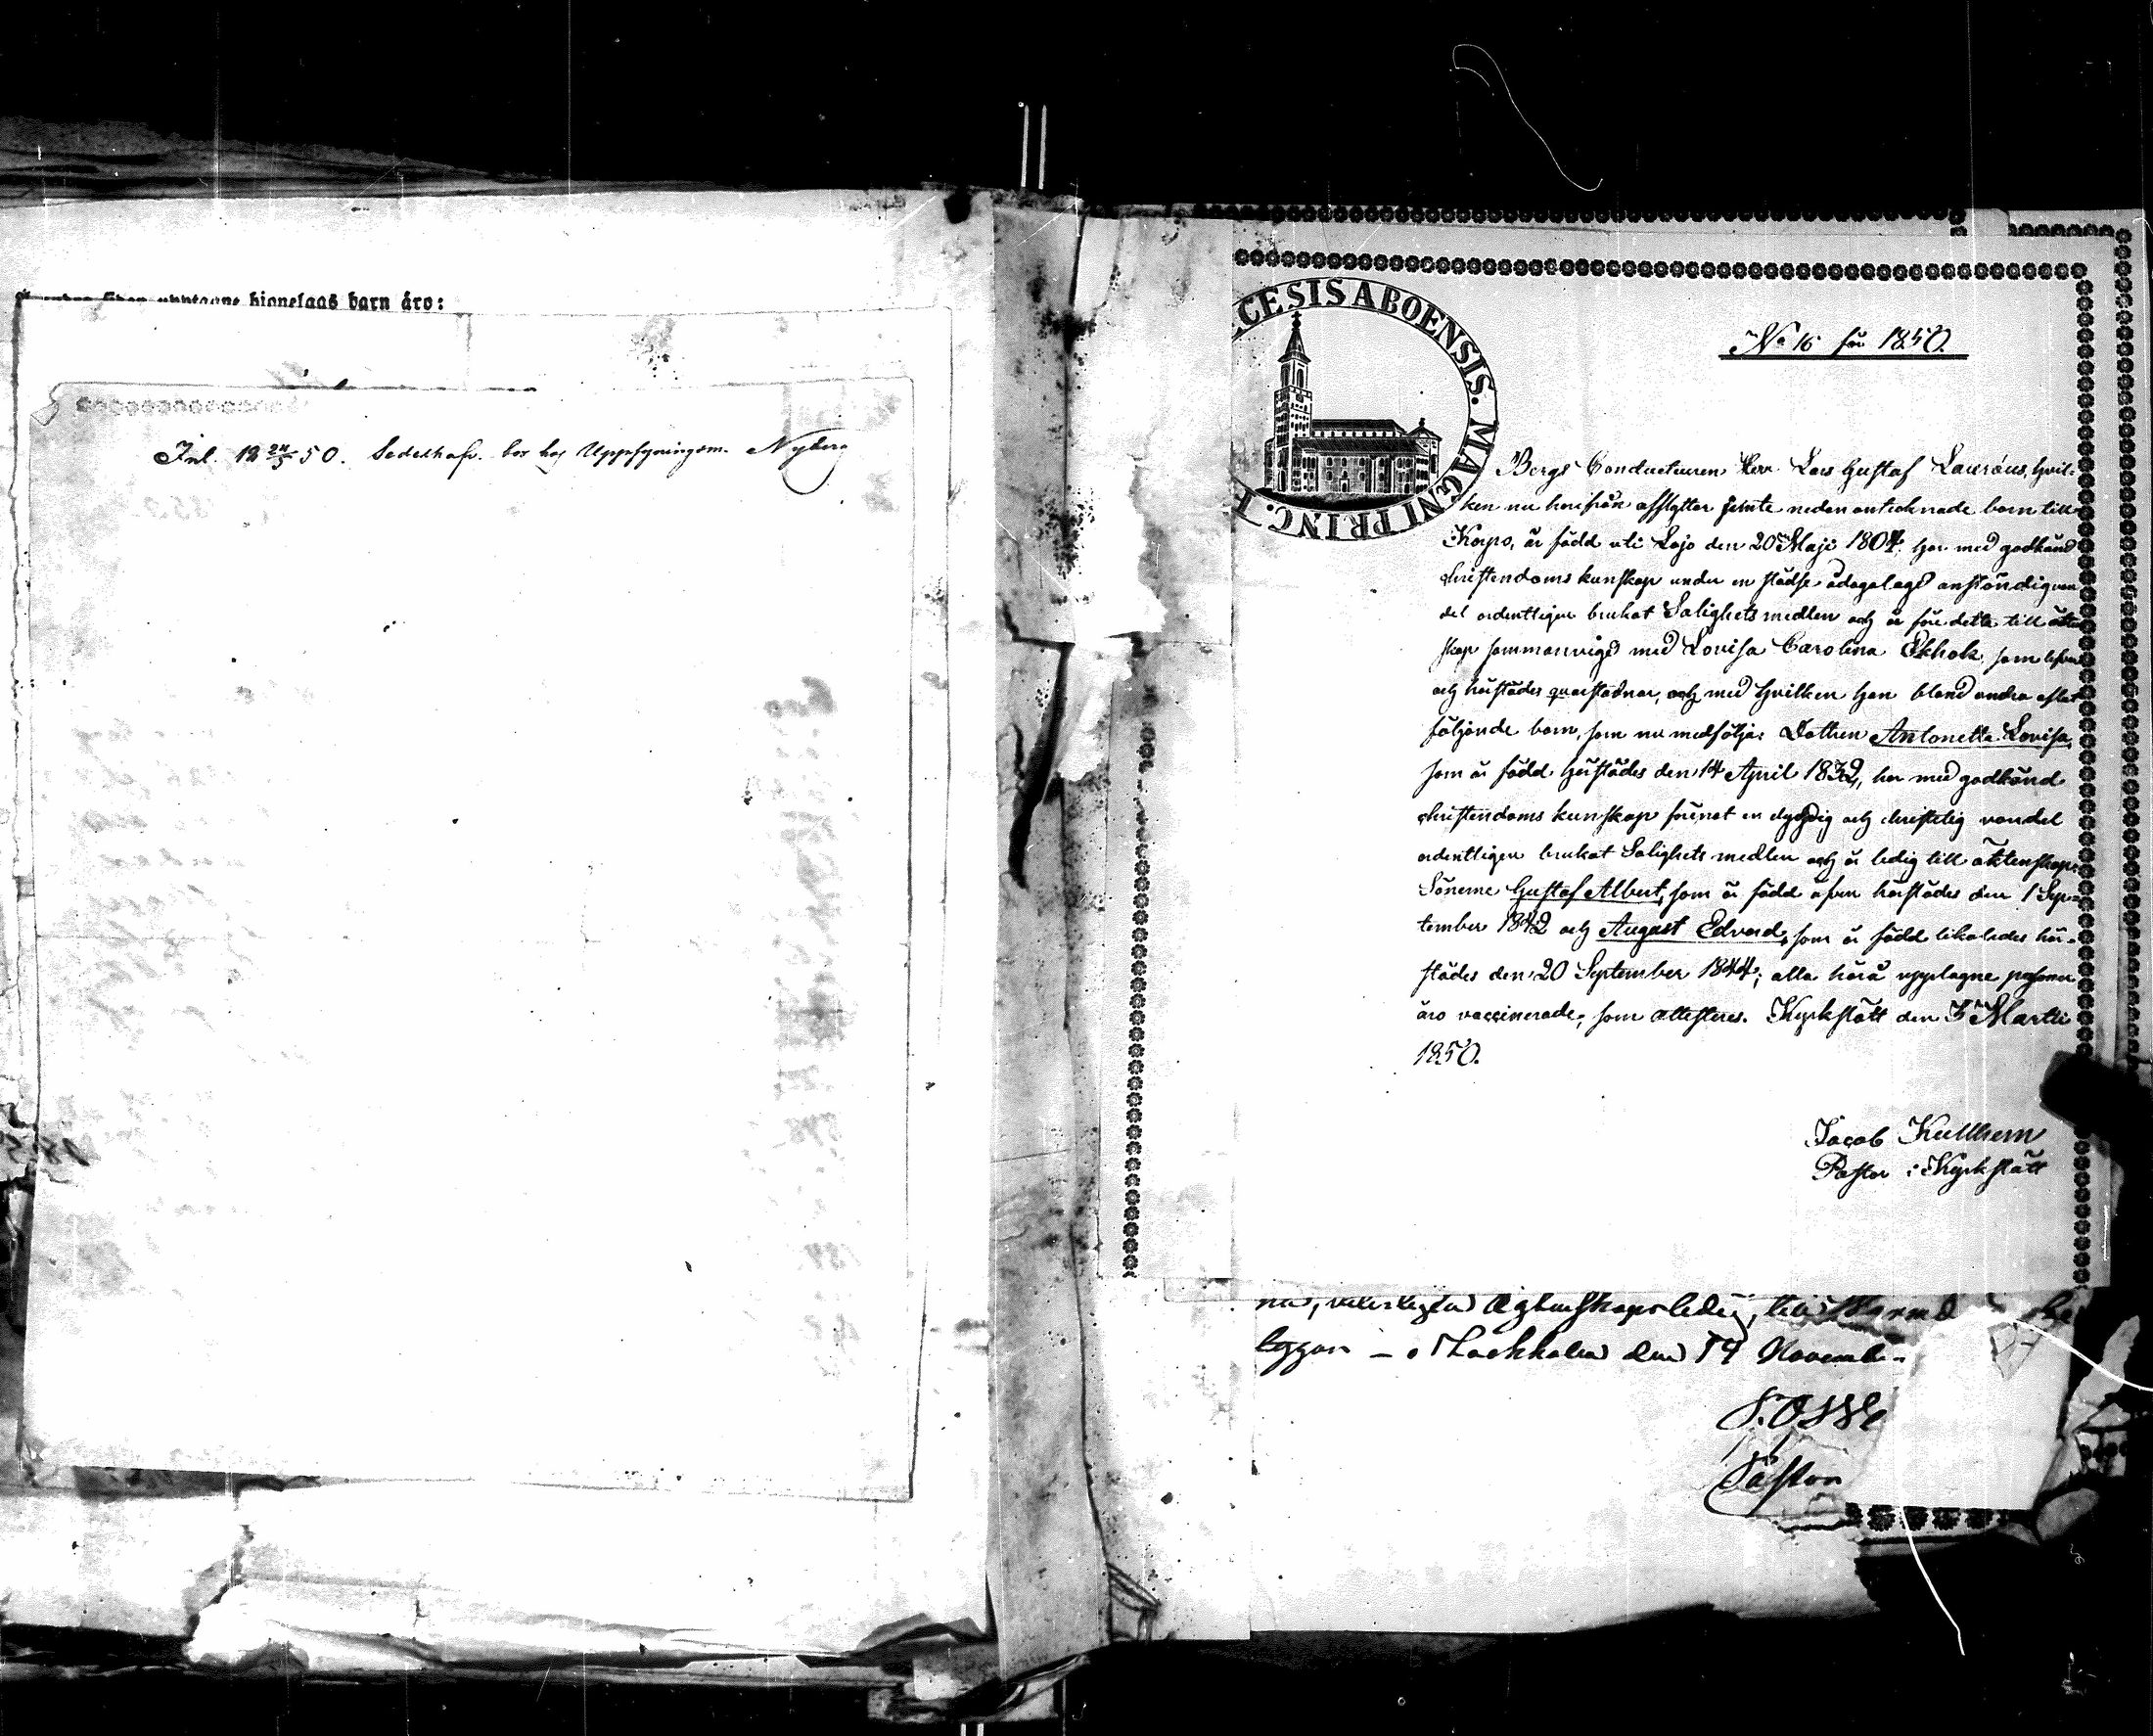 hionelags barn äro:
Inl. 18 24/5 50. Sedeshafv. bor hos Uppsyningsm. Nyberg
CESIS ABOENSIS. MAGNI PRINC. F
No 16 för 1850.
Bergs Conducteuren Herr Lars Gustaf Lauréus, hvil-
ken nu härifrån afflyttar jemte nedan antecknade barn till
Korpo, är född uti Lojo den 20 Maji 1804, har med godkänd
christendoms kunskap under en städse ådagalagd anständig van
del ordentligen brukat Salighets medlen och är före detta till äkten
skap sammanvigd med Lovisa Carolina Ekholm, som
och härstädes quarstadnar, och med hvilken han bland andra aflat
följande barn, som nu medfölja: Dottren Antonetta Lovisa,
som är född härstädes den 14 April 1832, har med godkänd
christendoms kunskap förenat en dygdig och christelig vandel
ordentligen brukat Salighets medlen och är ledig till äktenskap;
Sönerne Gustaf Albert, som är född äfven härstädes den 1 Sep-
tember 1842 och August Edvard, som är född likaledes här-
städes den 20 September 1844; alla härå upptagne personer
äro vaccinerade; som attesteras. Kyrkslätt den Martii
1850.
Jacob Kullhem
Pastor i Kyrkslätt
ledig, till
den 19 Novemb
Pastor